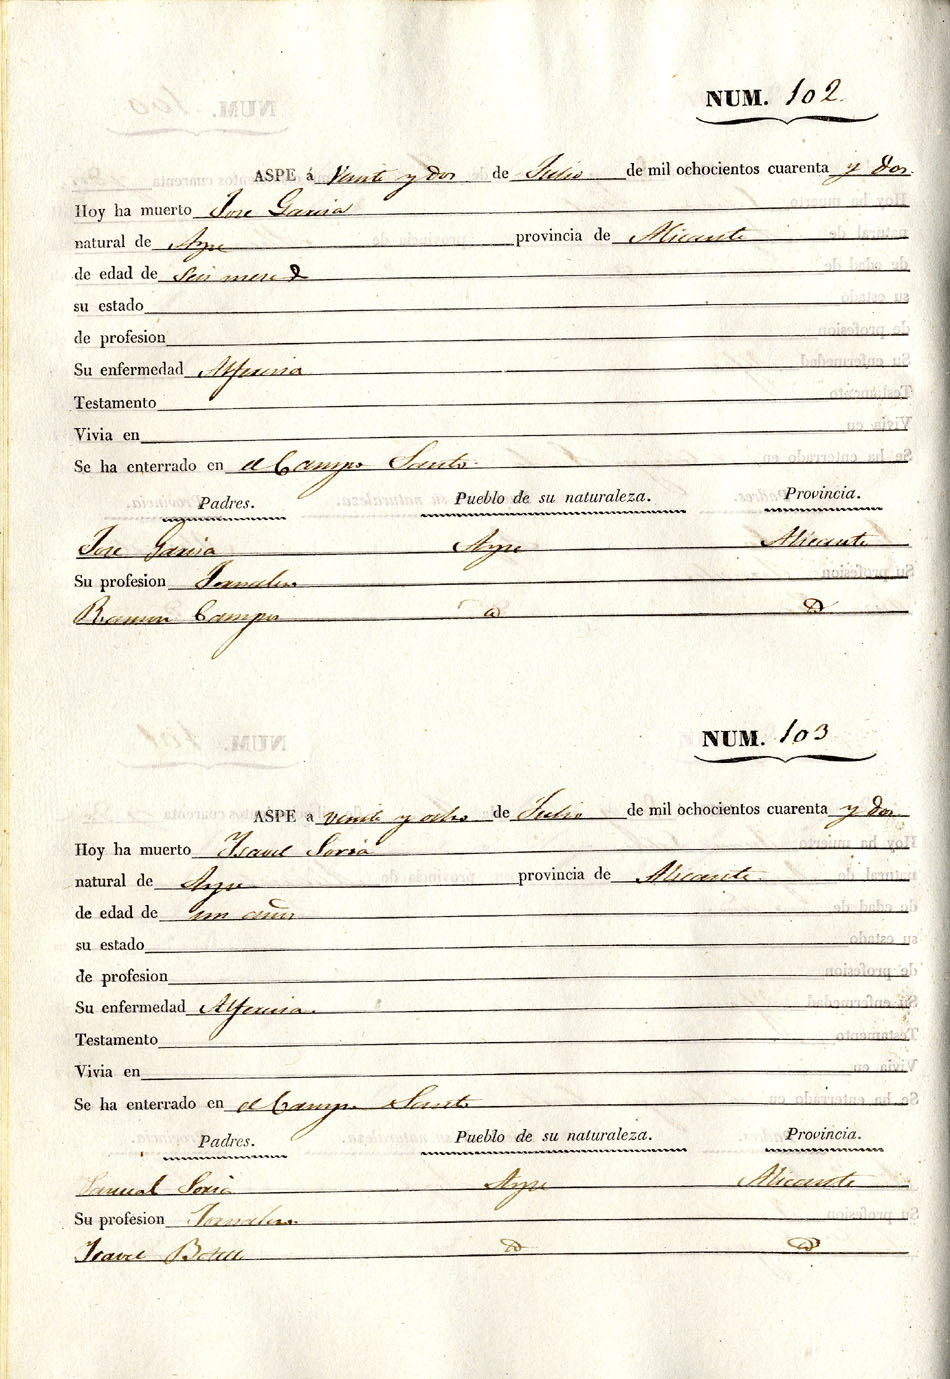 NUM. 102.
ASPE á Veinte y dos de Julio de mil ochocientos cuarenta y dos.
Hoy ha muerto Jose Garcia
natural de Aspe provincia de Alicante
de edad de seis mese
su estado
de profesion
Su enfermedad Alferecia
Testamento
Vivia en
Se ha enterrado en el Campo Santo.
Padres. Pueblo de su naturaleza. Provincia.
Jose Garcia Aspe Alicante
Su profesion Jornalero
Ramona Campos
NUM. 103
ASPE a veinte y ocho de Julio de mil ochocientos cuarenta y dos.
Hoy ha muerto Isavel Soria
natural de Aspe provincia de Alicante.
de edad de un año
su estado
de profesion
Su enfermedad Alferecia.
Testamento
Vivia en
Se ha enterrado en el Campo Santo
Padres. Pueblo de su naturaleza. Provincia.
Soria Aspe Alicante
Su profesion Jornalero.
Isavel Botella